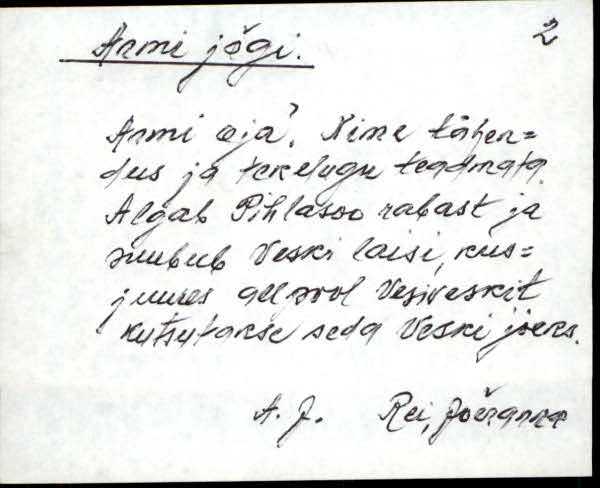 Armi jõgi.
2
Armi oja. Nime tähen=
dus ja tekelugu teadmata.
Algab Pihlasoo rabast ja
suubub Veski laisi, kus=
juures allpool Vesiveskit
kutsutakse seda Veski jõeks.
A. J. Rei,